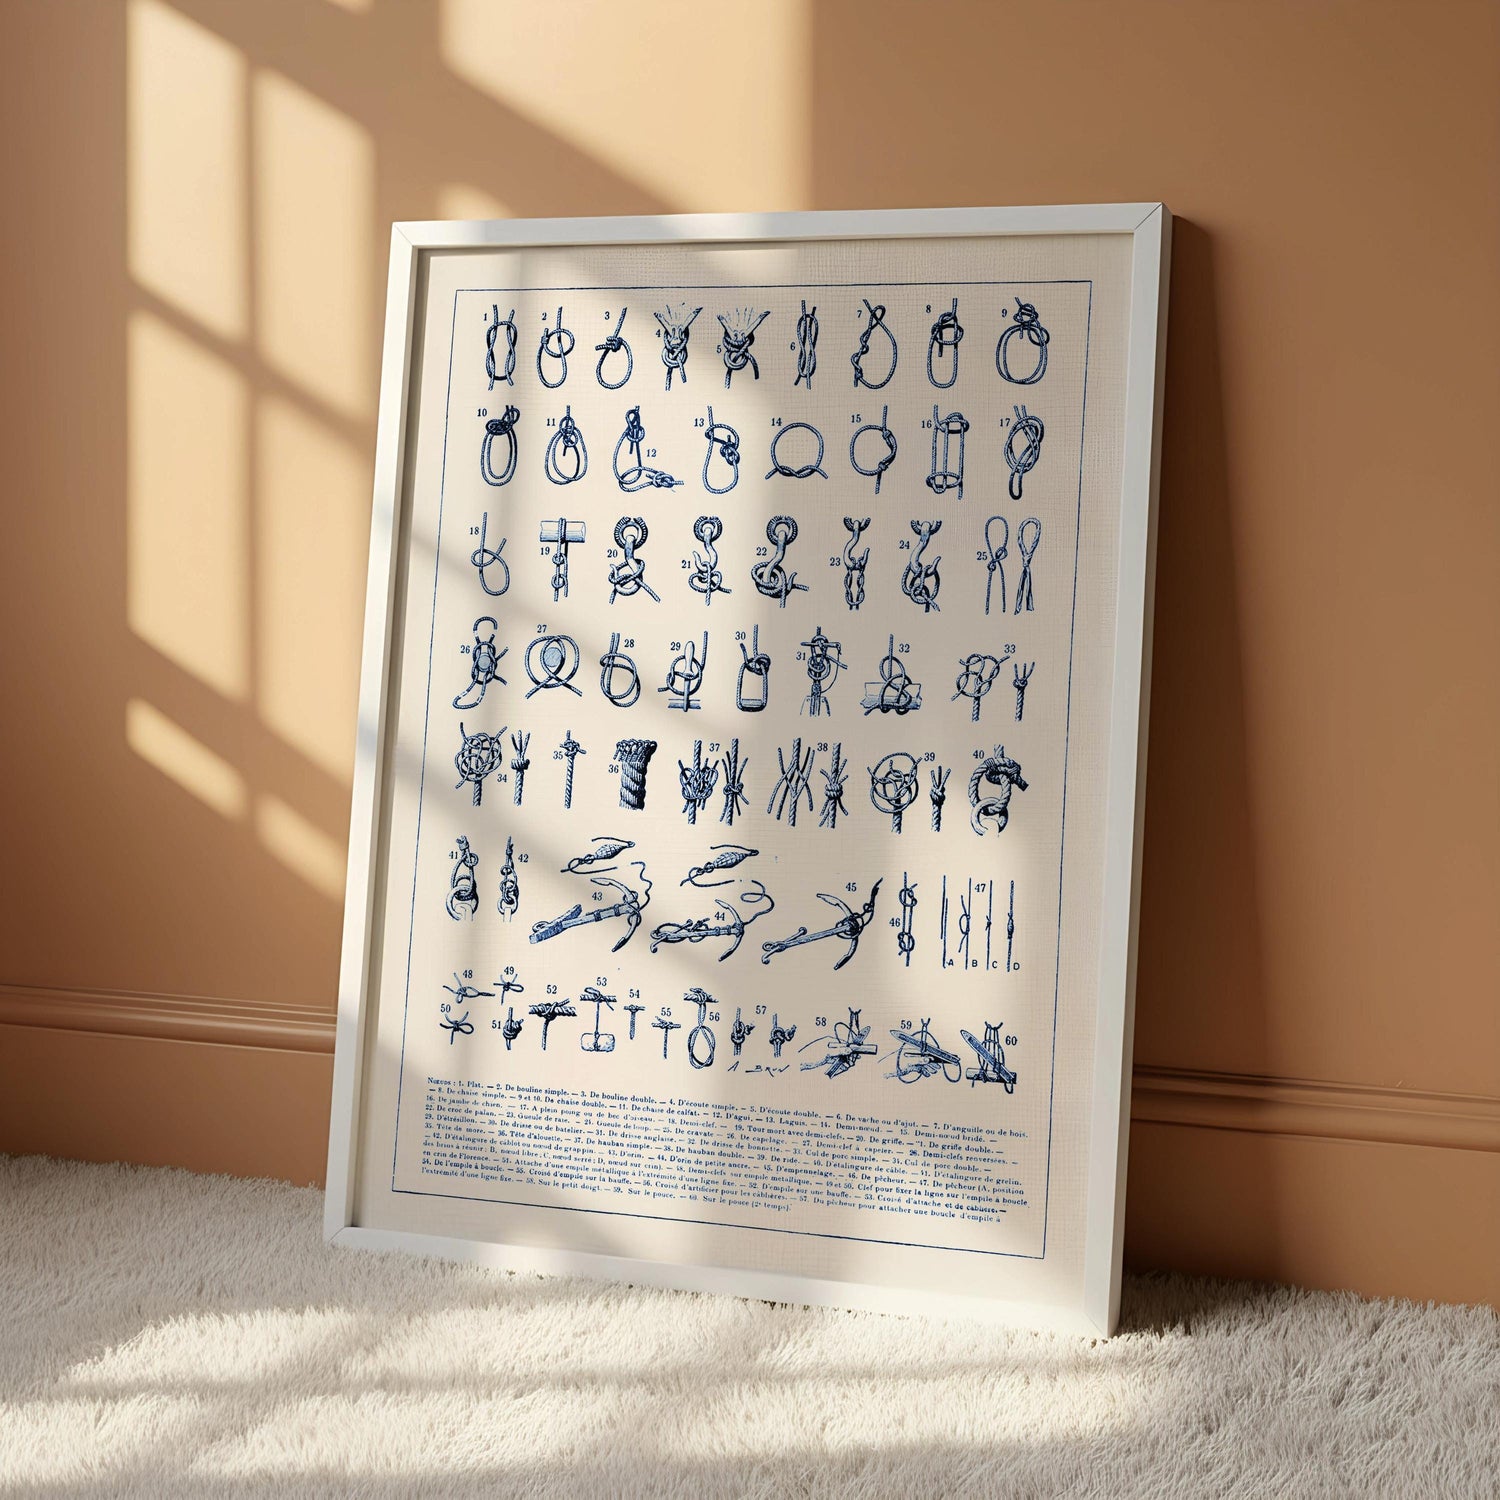 1 2 3 4 5 6 7 8 9
10 11 12 13 14 15 16 17
18 19 20 21 22 23 24 25
26 27 28 29 30 31 32 33
34 35 36 37 38 39 40
41 42 43 44 45 46 47
A B C D
48 49 50 51 52 53 54 55 56 57 58 59 60
A BRUN
Nœuds : 1. Plat. — 2. De bouline simple. — 3. De bouline double. — 4. D'écoute simple. — 5. D'écoute double. — 6. De vache ou d'ajut. — 7. D'anguille ou de bois.
— 8. De chaise simple. — 9 et 10. De chaise double. — 11. De chaise de calfat. — 12. D'agui. — 13. Laguis. — 14. Demi-nœud. — 15. Demi-nœud bridé. —
16. De jambe de chien. — 17. A plein poing ou de bec d'oiseau. — 18. Demi-clef. — 19. Tour mort avec demi-clefs. — 20. De griffe. — 21. De griffe double. —
22. De croc de palan. — 23. Gueule de raie. — 24. Gueule de loup. — 25. De cravate — 26. De capelage. — 27. Demi-clef à capeler. — 28. Demi-clefs renversées. —
29. D'étrésillon. — 30. De drisse ou de batelier. — 31. De drisse anglaise. — 32. De drisse de bonnette. — 33. Cul de porc simple. — 34. Cul de porc double. —
35. Tête de more. — 36. Tête d'alouette. — 37. De hauban simple. — 38. De hauban double. — 39. De ride. — 40. D'étalingure de câble. — 41. D'étalingure de grelin.
— 42. D'étalingure de câblot ou nœud de grappin. — 43. D'orin. — 44. D'orin de petite ancre. — 45. D'empennelage. — 46. De pêcheur. — 47. De pêcheur (A, position
des brins à réunir ; B, nœud libre ; C, nœud serré ; D, nœud sur crin). — 48. Demi-clefs sur empile métallique. — 49 et 50. Clef pour fixer la ligne sur l'empile à boucle
en crin de Florence. — 51. Attache d'une empile métallique à l'extrémité d'une ligne fixe. — 52. D'empile sur une bauffe. — 53. Croisé d'attache et de câblière. —
54. De l'empile à boucle. — 55. Croisé d'empile sur la bauffe. — 56. Croisé d'artificier pour les câblières. — 57. Du pêcheur pour attacher une boucle d'empile à
l'extrémité d'une ligne fixe. — 58. Sur le petit doigt. — 59. Sur le pouce. — 60. Sur le pouce (2ᵉ temps).